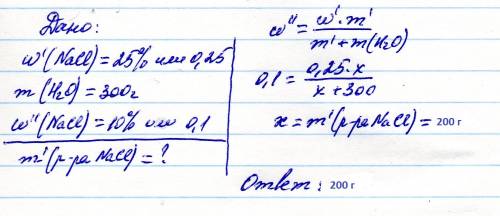 Дано:
ω'(NaCl) = 25% или 0,25
m(H₂O) = 300г
ω''(NaCl) = 10% или 0,1
m'(р-ра NaCl) = ?
ω'' = ω'·m' / m' + m(H₂O)
0,1 = 0,25·x / x + 300
x = m'(р-ра NaCl) = 200 г
Ответ: 200 г